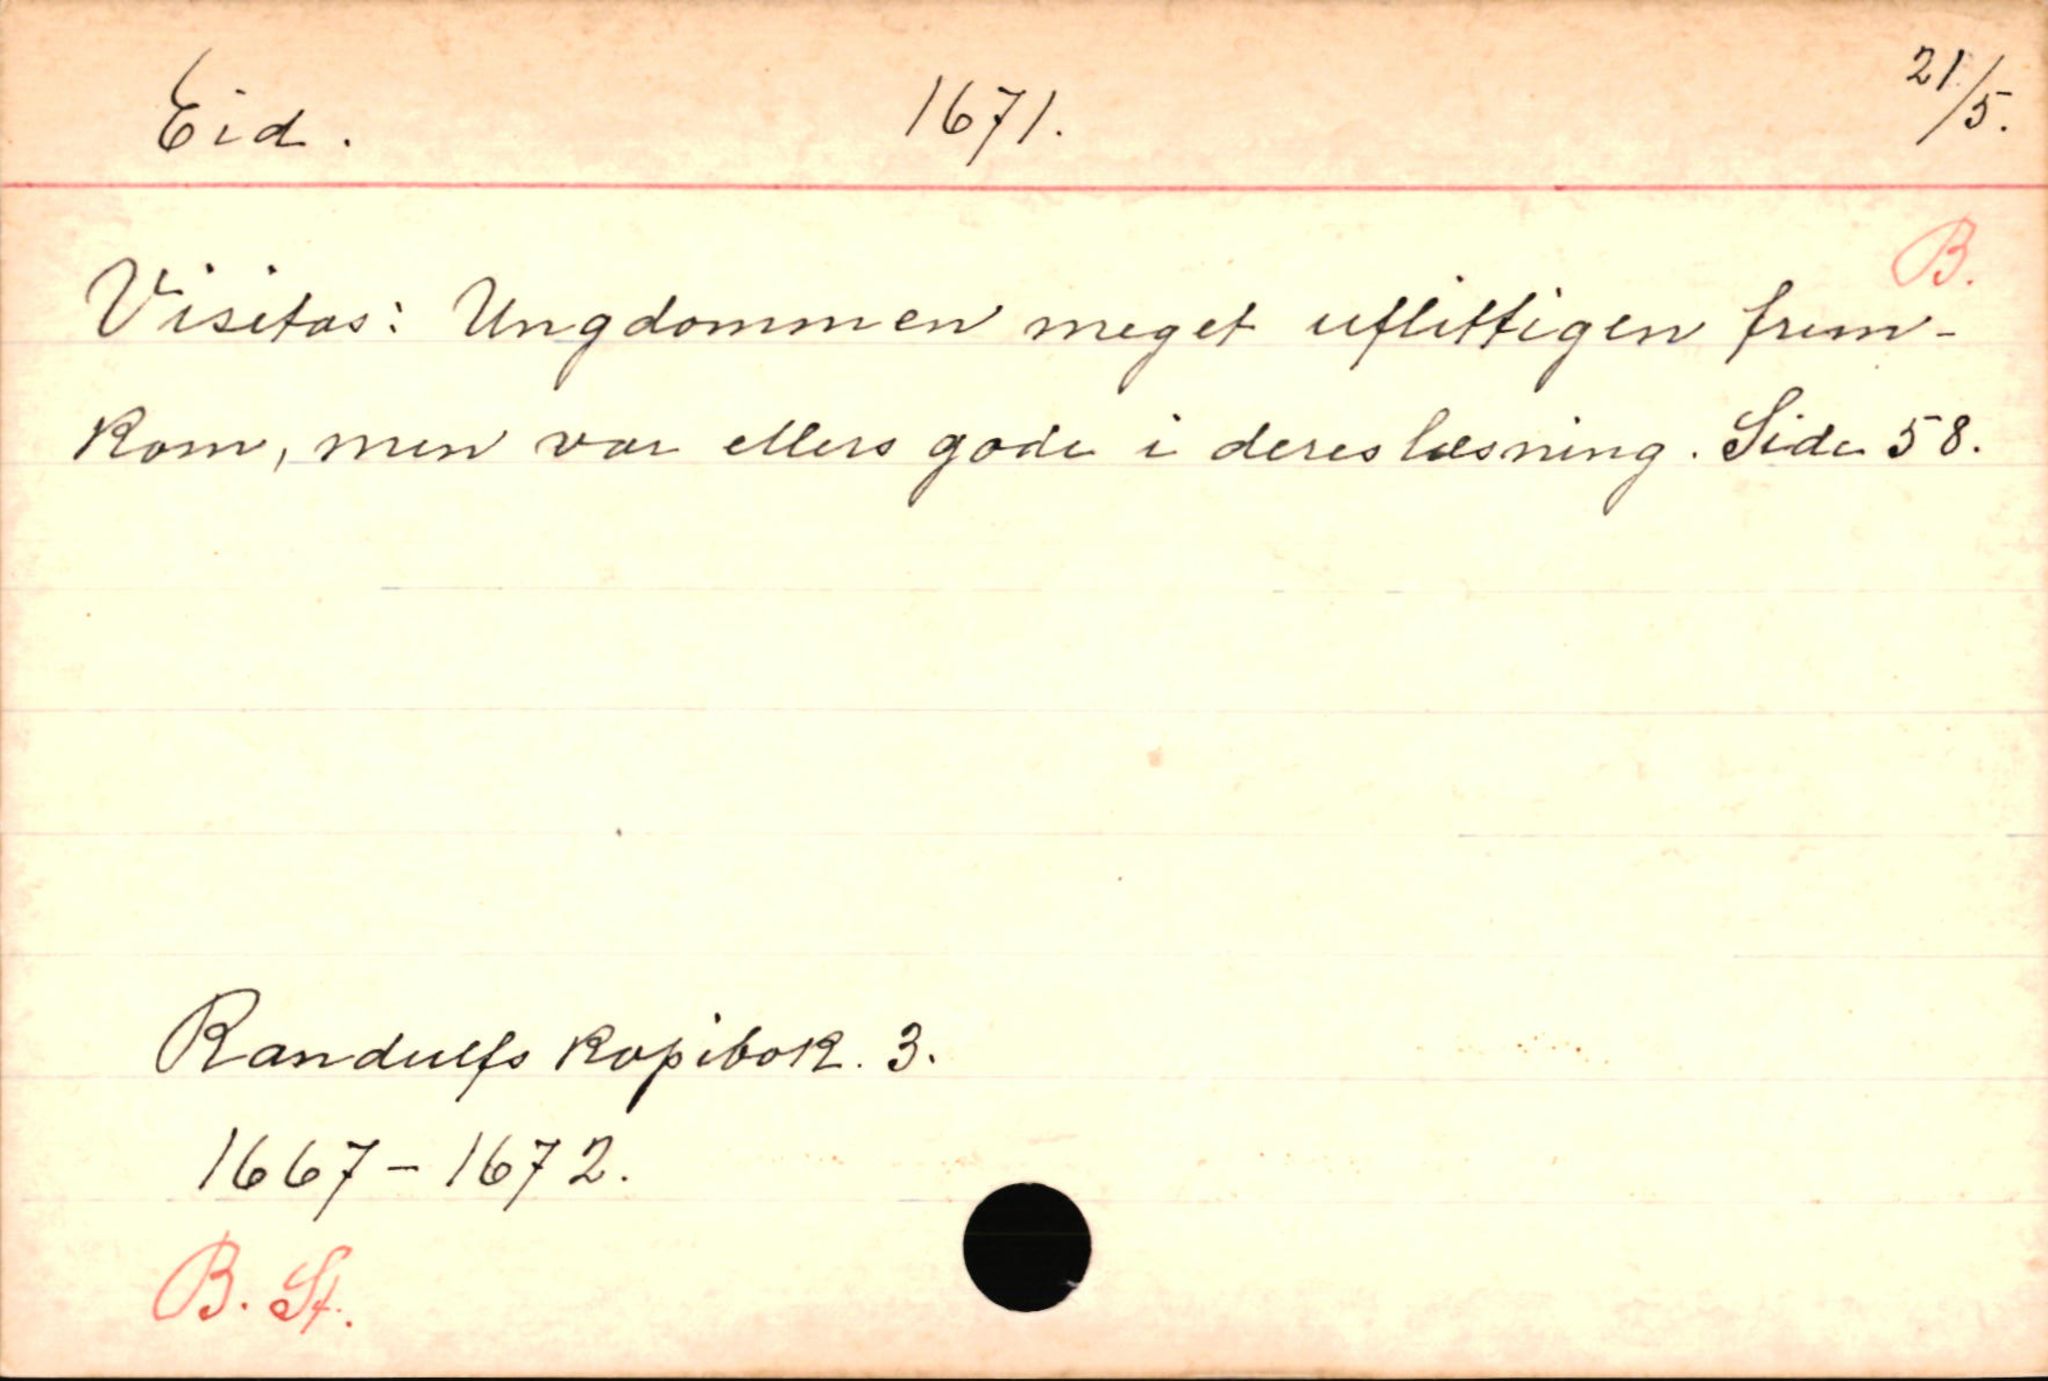 Eid. 1671. 21/5.
B.
Visitas: Ungdommen meget uflittigen frem-
kom, men var ellers gode i deres læsning. Side 58.
Randulfs kopibok. 3.
1667-1672.
B. St.